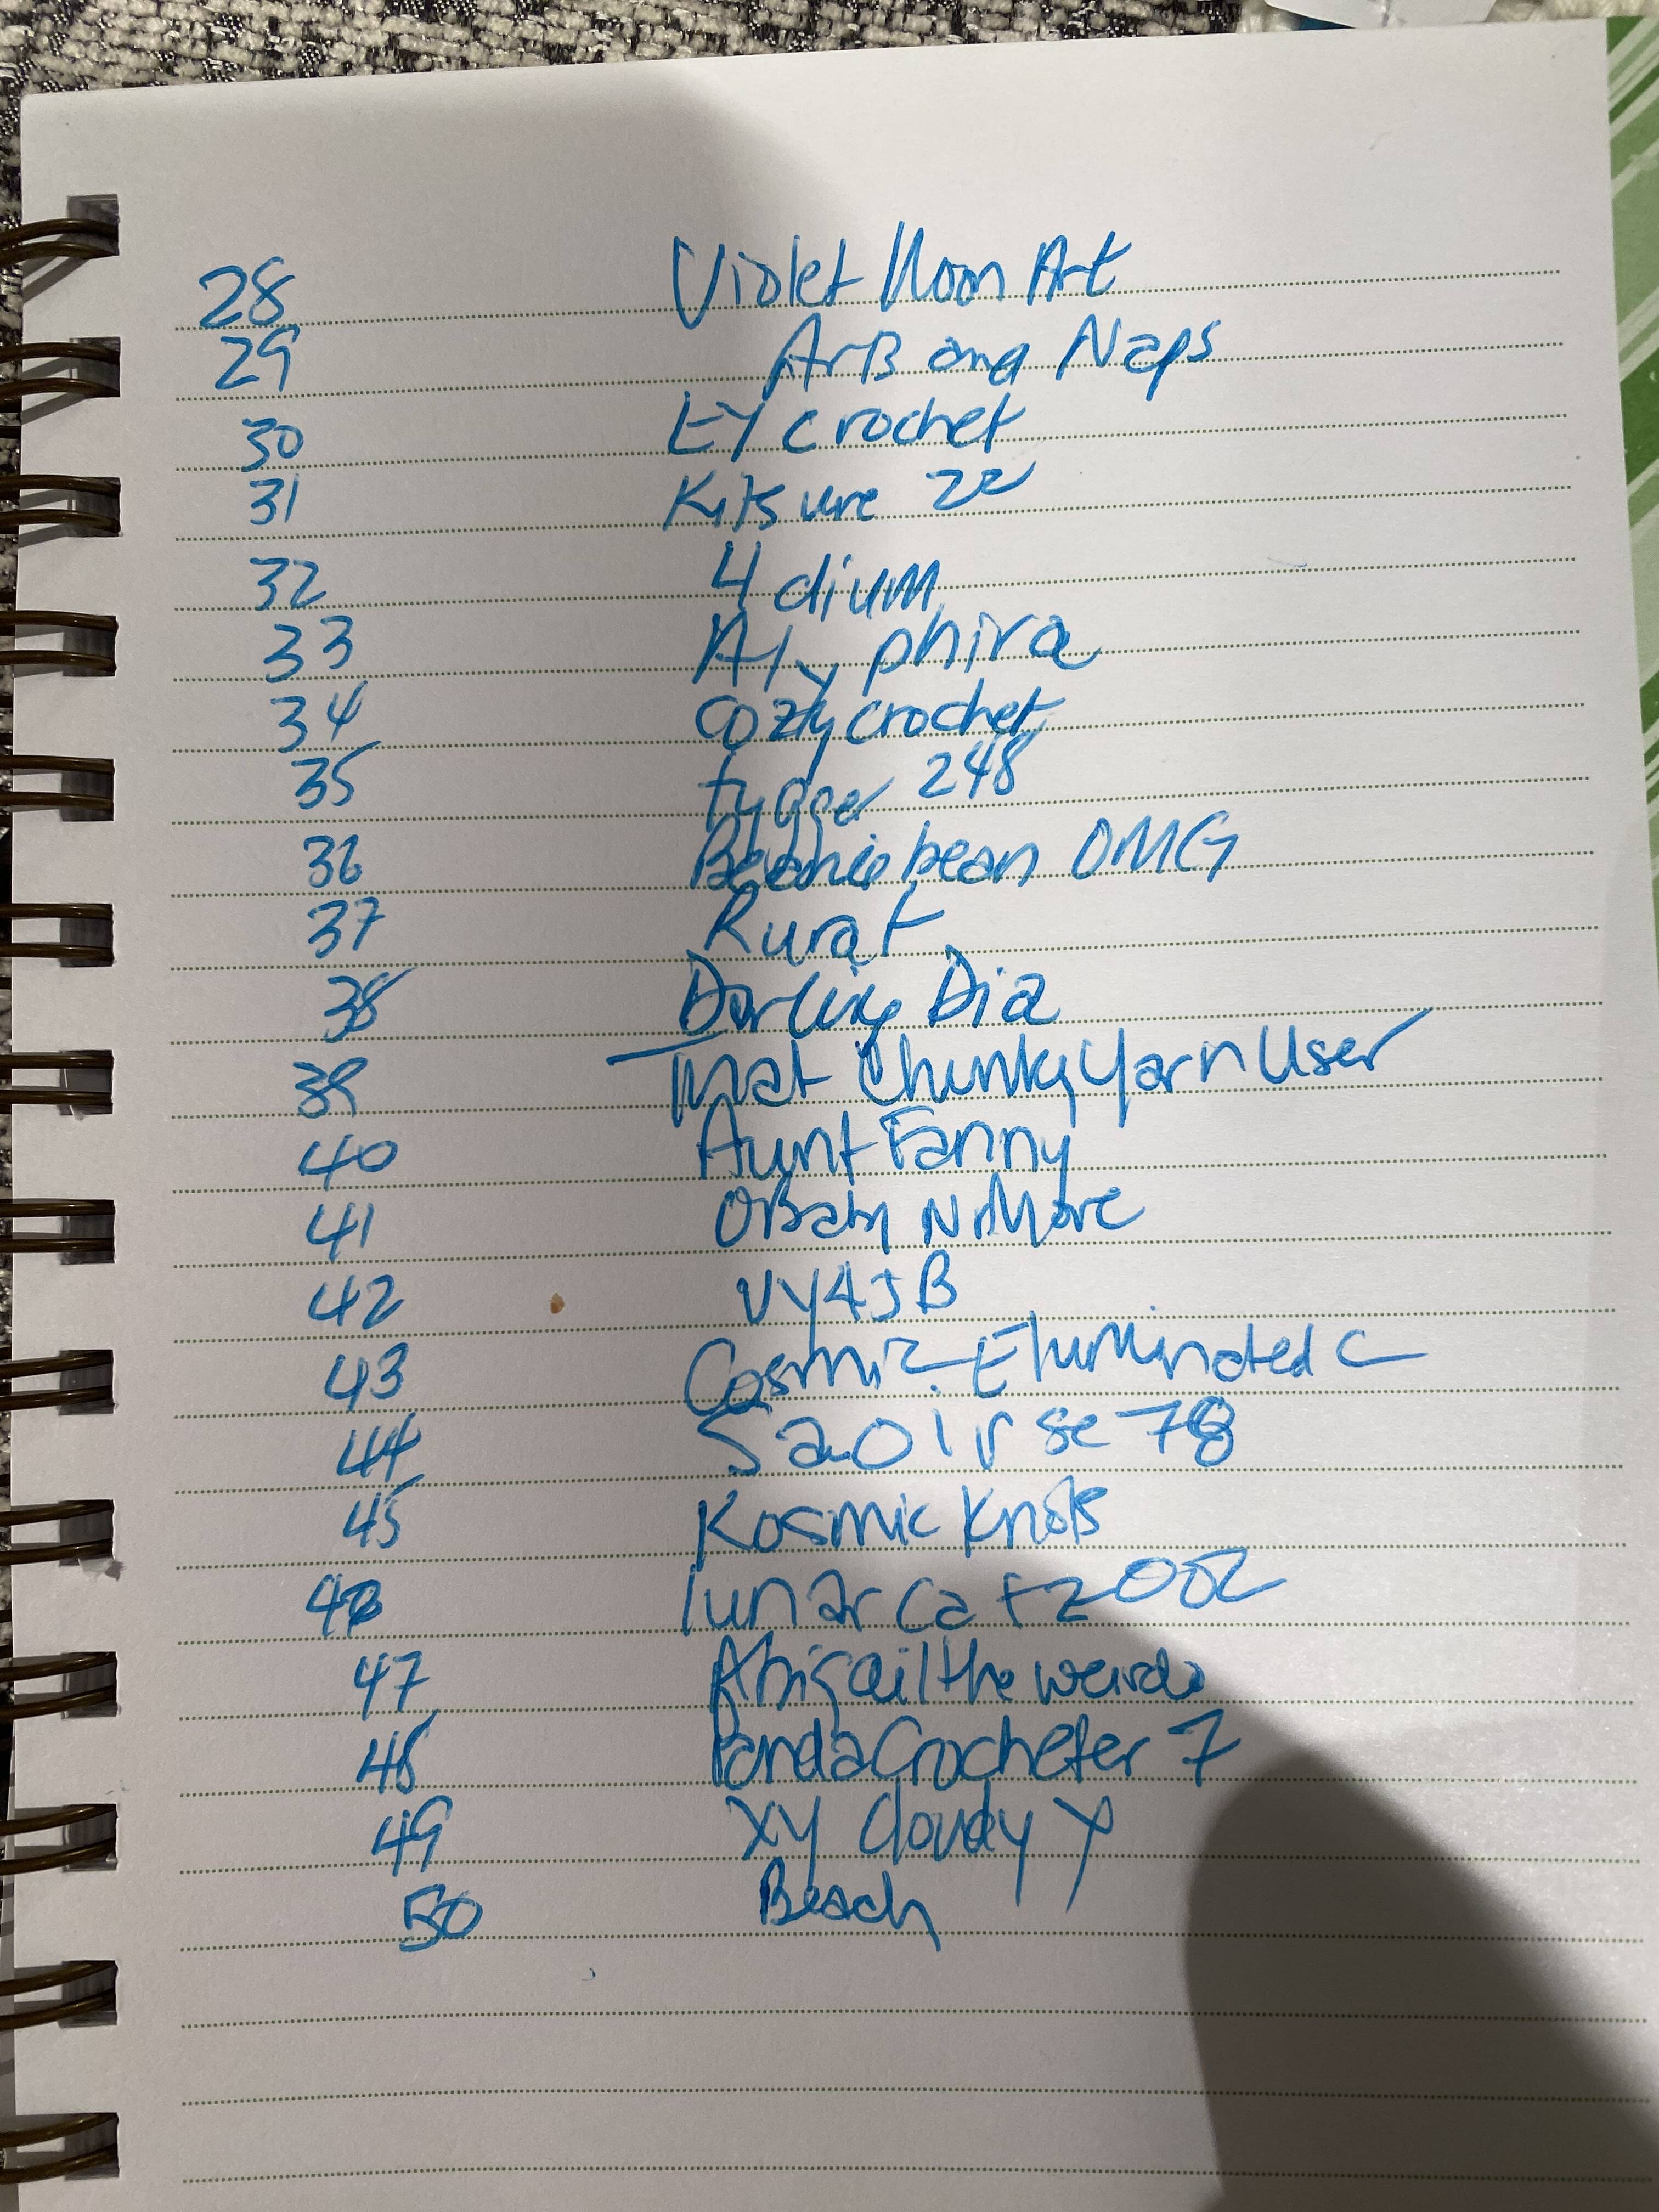 28 Violet Moon Art
29 Arts and Naps
30 EY crochet
31 Kitsune 22
32 4 dium
33 Aly phira
34 cozy crochet
35 tygger 248
36 bean OMG
37 Rurat
38 Darling Dia
39 That Chunky Yarn User
40 Aunt Fanny
41 OBaby NoMore
42 VY4JB
43 Cosmic-Eluminated C
44 Saoirse 78
45 Kosmic Knots
46 lunar cat 2002
47 Abigail the weirdo
48 Panda Crocheter 7
49 XY Cloudy Y
50 Beach